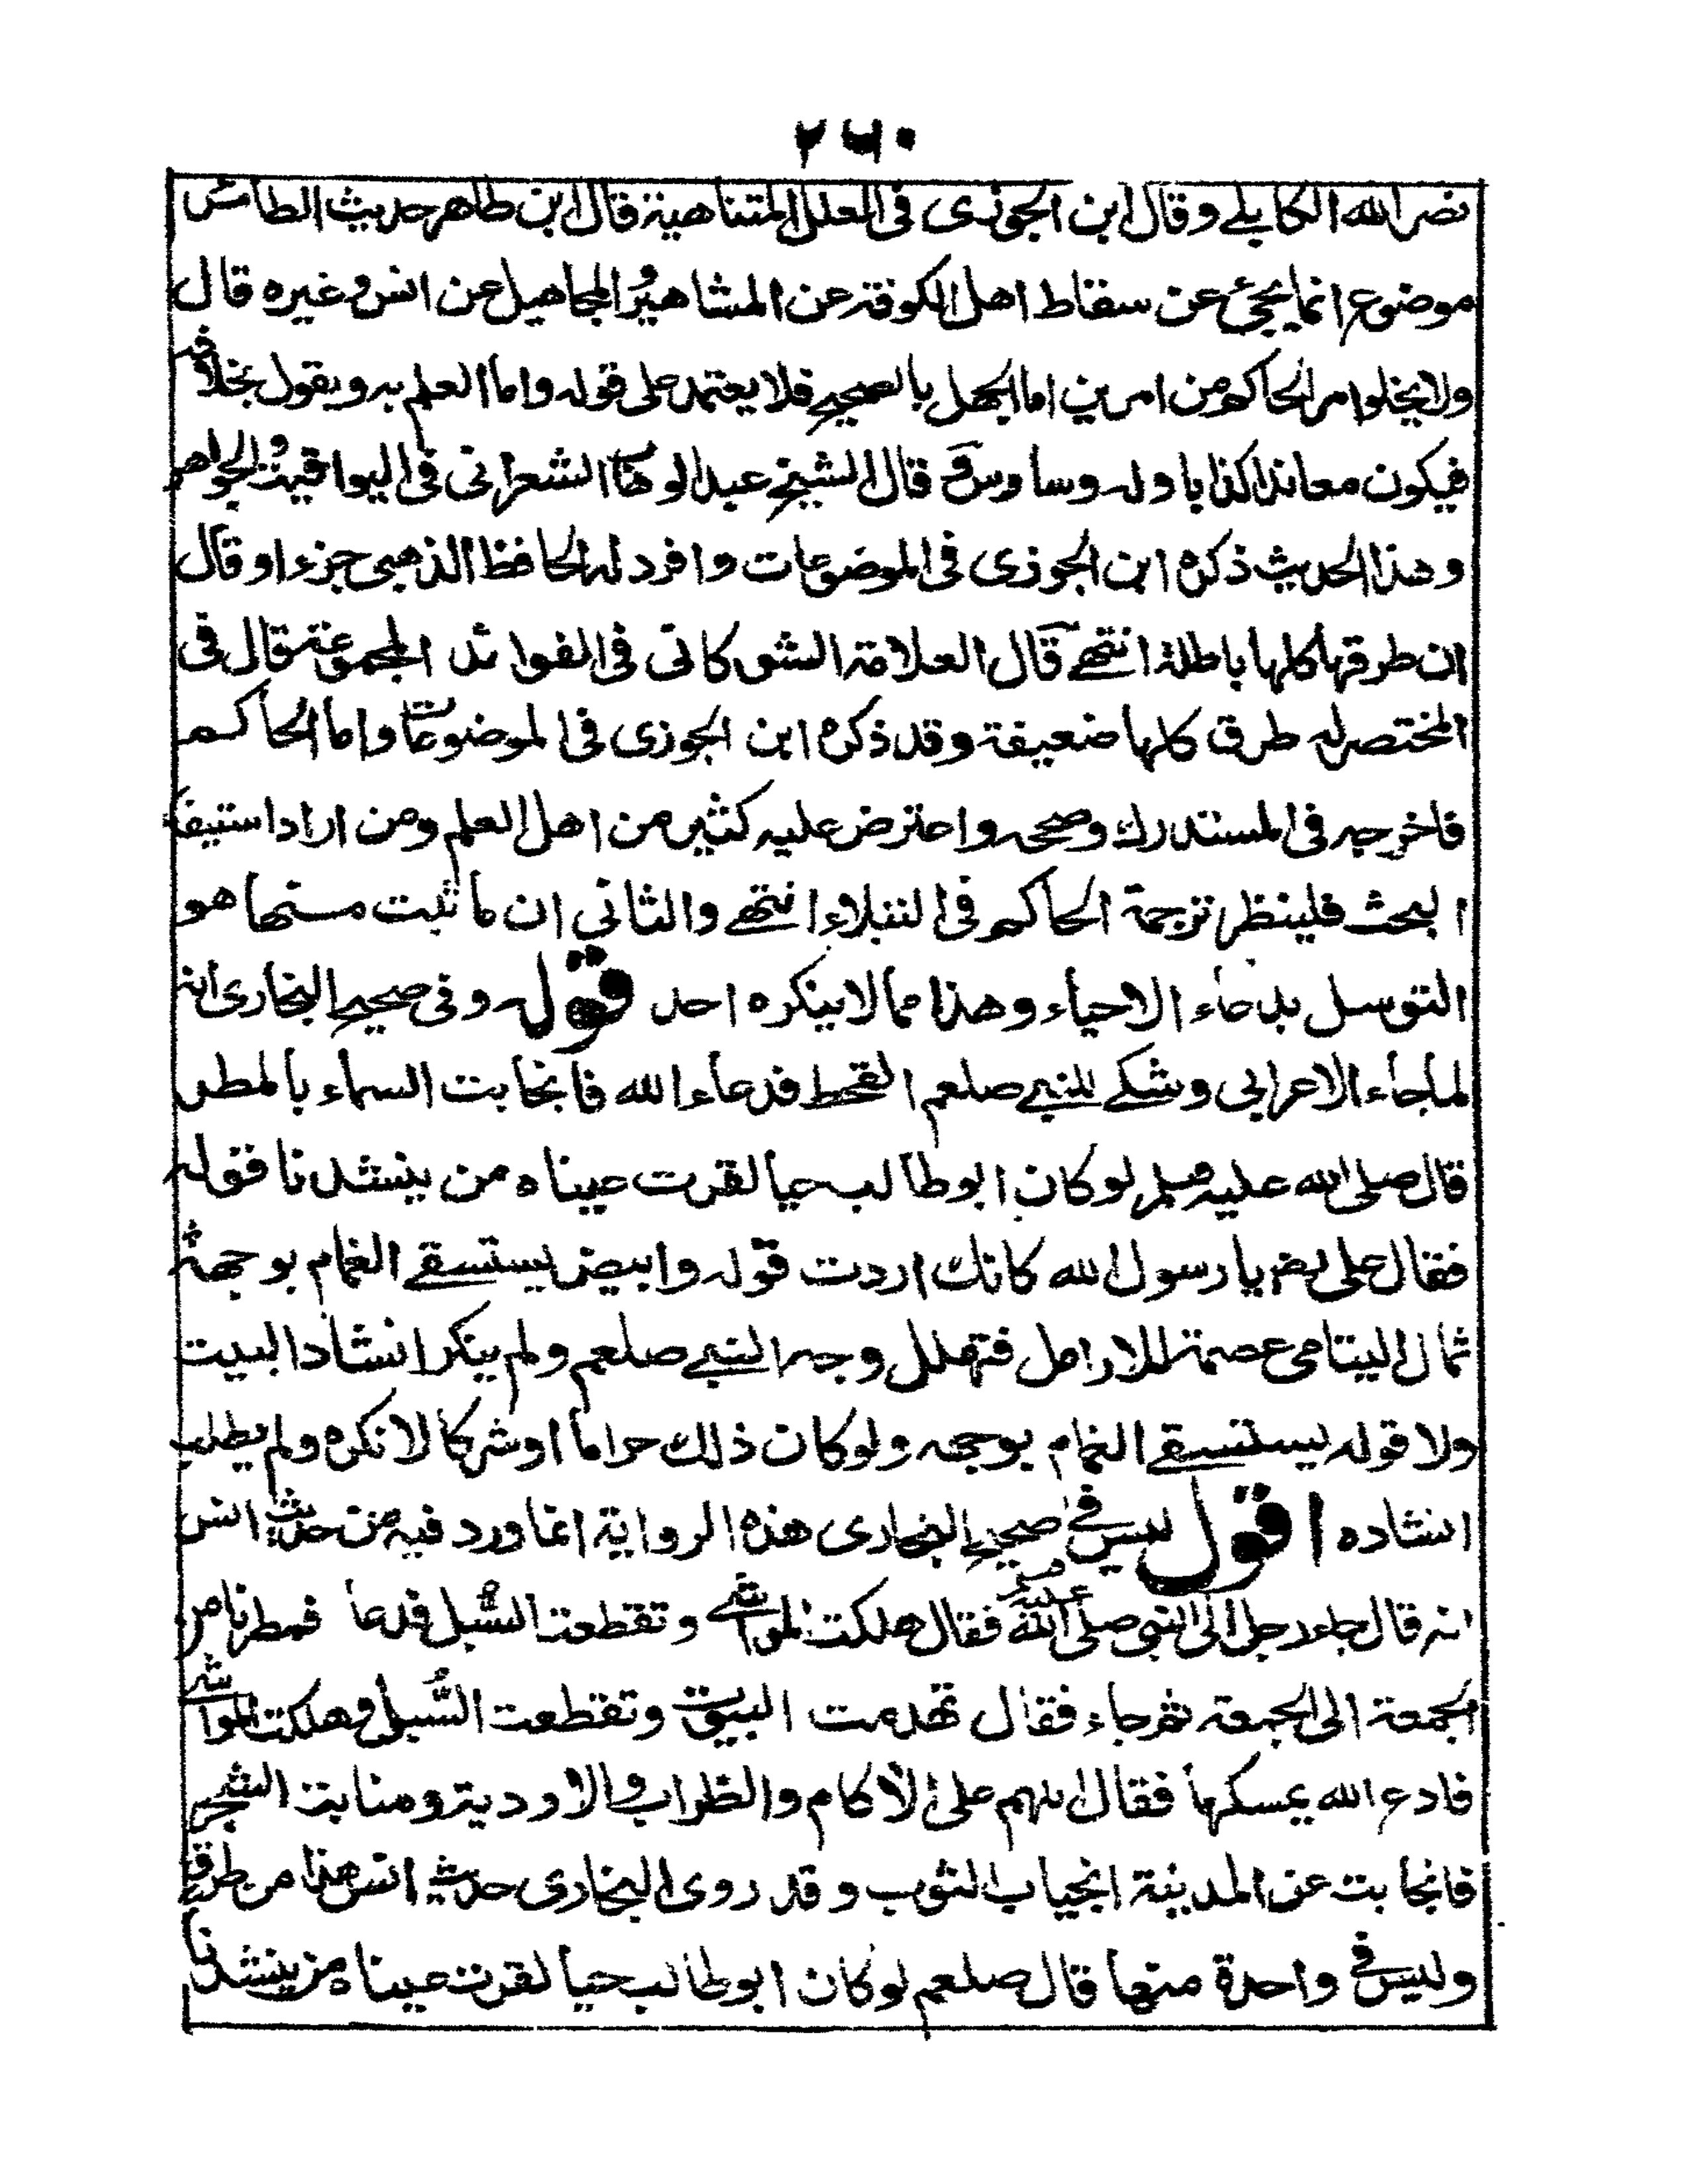 ٢٦٠
نصر الله الكابلے وقال ابن الجوزى فى العلل المتناهية قال ابن طاهر حديث الطائر
موضوع انما يجئ عن سقاط اهل الكوفة عن المشاهير والمجاهيل عن انس وغيره قال
ولا يخلوا امر الحاكم من امرين اما الجهل بالصحيح فلا يعتمد على قوله واما العلم به ويقول بخلافه
فيكون معاندا كذابا وله وساوس قال الشيخ عبد الوهاب الشعرانى فى اليواقيت والجواهر
وهذا الحديث ذكره ابن الجوزى فى الموضوعات وافرد له الحافظ الذهبى جزء او قال
ان طرقها كلها باطلة انتهے قال العلامة الشوكانى فى الفوائد المجموعة قال فى
المختصر له طرق كلها ضعيفة وقد ذكره ابن الجوزى فى الموضوعات واما الحاكم
فاخرجه فى المستدرك وصححه واعترض عليه كثير من اهل العلم ومن اراد استيفاء
البحث فلينظر ترجمة الحاكم فى النبلاء انتهے والثانى ان ما ثبت منها هو
التوسل بدعاء الاحياء وهذا مما لا ينكره احد قوله وفى صحيح البخارى انه
لما جاء الاعرابى وشكے للنبے صلعم القحط فدعاء الله فانجابت السماء بالمطر
قال صلى الله عليه وسلم لو كان ابو طالب حيا لقرت عيناه من ينشدنا قوله
فقال على رض يا رسول الله كانك اردت قوله وابيض يستسقے الغمام بوجهه
ثمال اليتامى عصمة للارامل فتهلل وجه النبے صلعم ولم ينكر انشاد البيت
ولا قوله يستسقے الغمام بوجهه ولو كان ذلك حراما او شركا لانكره ولم يطلب
انشاده اقول ليس فے صحيح البخارى هذه الرواية انما ورد فيه من حديث انس
انه قال جاء رجل الى النبى صلى الله عليه وسلم فقال هلكت المواشے وتقطعت السُّبل فدعا فمطرنا من
الجمعة الى الجمعة ثم جاء فقال تهدمت البيوت وتقطعت السُّبل وهلكت المواشے
فادع الله يمسكها فقال اللهم على الاكام والظراب والاودية ومنابت الشجر
فانجابت عن المدينة انجياب الثوب وقد روى البخارى حديث انس هذا من طرق
وليس فے واحدة منها قال صلعم لو كان ابو طالب حيا لقرت عيناه من ينشدنا